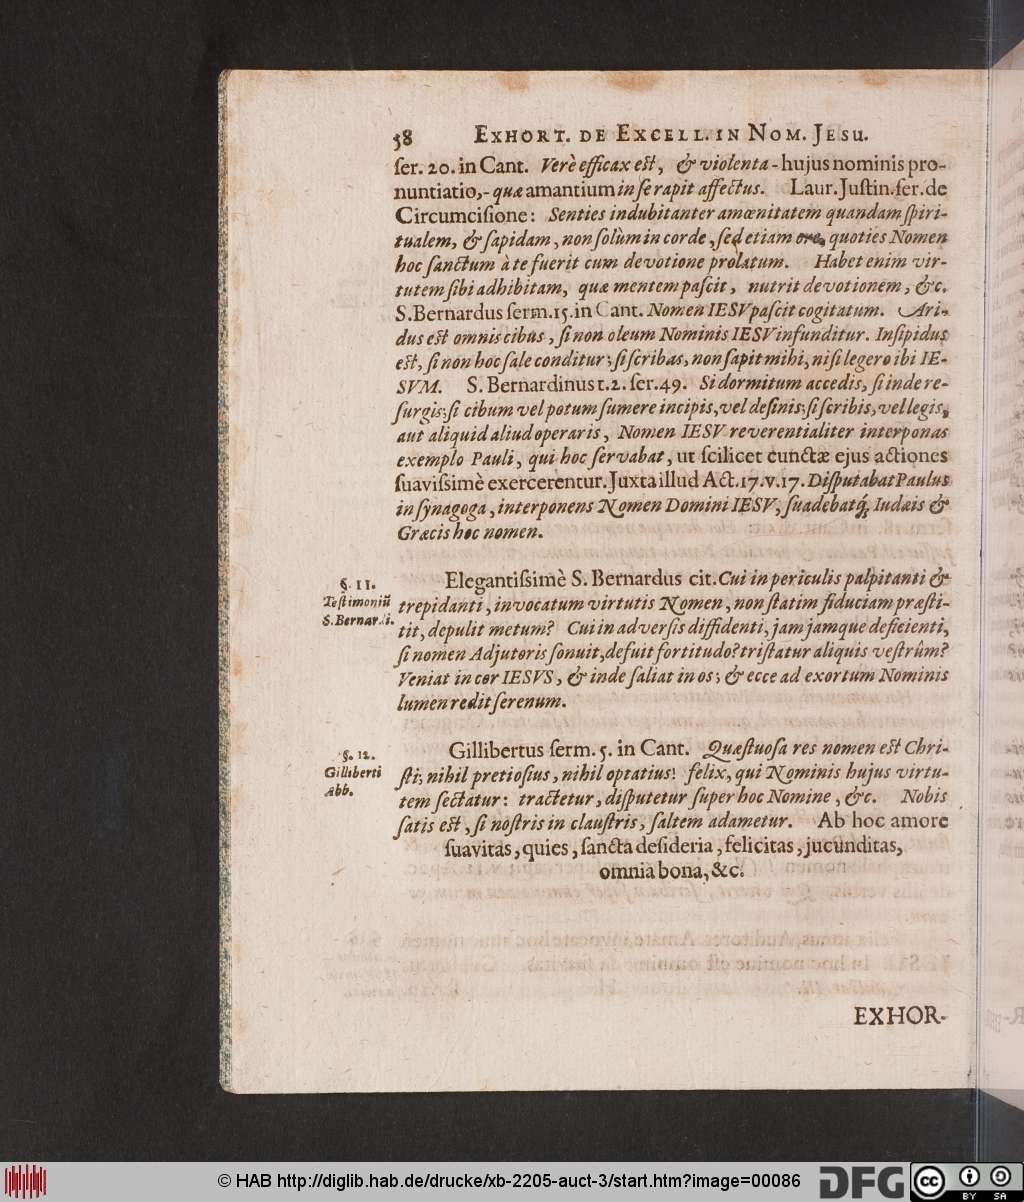 58 EXHORT. DE EXCELL. IN NOM. JESU.
ſer. 20. in Cant. Verè efficax eſt, & violenta - hujus nominis pro-
nuntiatio,- quæ amantium in ſe rapit affectus. Laur. Juſtin. ſer. de
Circumciſione: Senties indubitanter amœnitatem quandam ſpiri-
tualem, & ſapidam, non ſolùm in corde, ſed etiam ore, quoties Nomen
hoc ſanctum à te fuerit cum devotione prolatum. Habet enim vir-
tutem ſibi adhibitam, quæ mentem paſcit, nutrit devotionem, &c.
S. Bernardus ſerm. 15. in Cant. Nomen IESV paſcit cogitatum. Ari-
dus eſt omnis cibus, ſi non oleum Nominis IESV infunditur. Inſipidus
eſt, ſi non hoc ſale conditur; ſi ſcribas, non ſapit mihi, niſi legero ibi IE-
SVM. S. Bernardinus t. 2. ſer. 49. Si dormitum accedis, ſi inde re-
ſurgis; ſi cibum vel potum ſumere incipis, vel deſinis; ſi ſcribis, vel legis,
aut aliquid aliud operaris, Nomen IESV reverentialiter interponas
exemplo Pauli, qui hoc ſervabat, ut ſcilicet cunctæ ejus actiones
ſuaviſsimè exercerentur. Juxta illud Act. 17. v. 17. Diſputabat Paulus
in ſynagoga, interponens Nomen Domini IESV, ſuadebatq́; Iudæis &
Græcis hoc nomen.
§. 11.
Teſtimoniũ
S. Bernardi.
Elegantiſsimè S. Bernardus cit. Cui in periculis palpitanti &
trepidanti, invocatum virtutis Nomen, non ſtatim fiduciam præſti-
tit, depulit metum? Cui in adverſis diffidenti, jam jamque deficienti,
ſi nomen Adjutoris ſonuit, defuit fortitudo? triſtatur aliquis veſtrûm?
Veniat in cor IESVS, & inde ſaliat in os; & ecce ad exortum Nominis
lumen redit ſerenum.
§. 12.
Gilliberti
Abb.
Gillibertus ſerm. 5. in Cant. Quæſtuoſa res nomen eſt Chri-
ſti; nihil pretioſius, nihil optatius! felix, qui Nominis hujus virtu-
tem ſectatur: tractetur, diſputetur ſuper hoc Nomine, &c. Nobis
ſatis eſt, ſi noſtris in clauſtris, ſaltem adametur. Ab hoc amore
ſuavitas, quies, ſancta deſideria, felicitas, jucunditas,
omnia bona, &c.
EXHOR-
© HAB http://diglib.hab.de/drucke/xb-2205-auct-3/start.htm?image=00086
DFG
cc BY SA